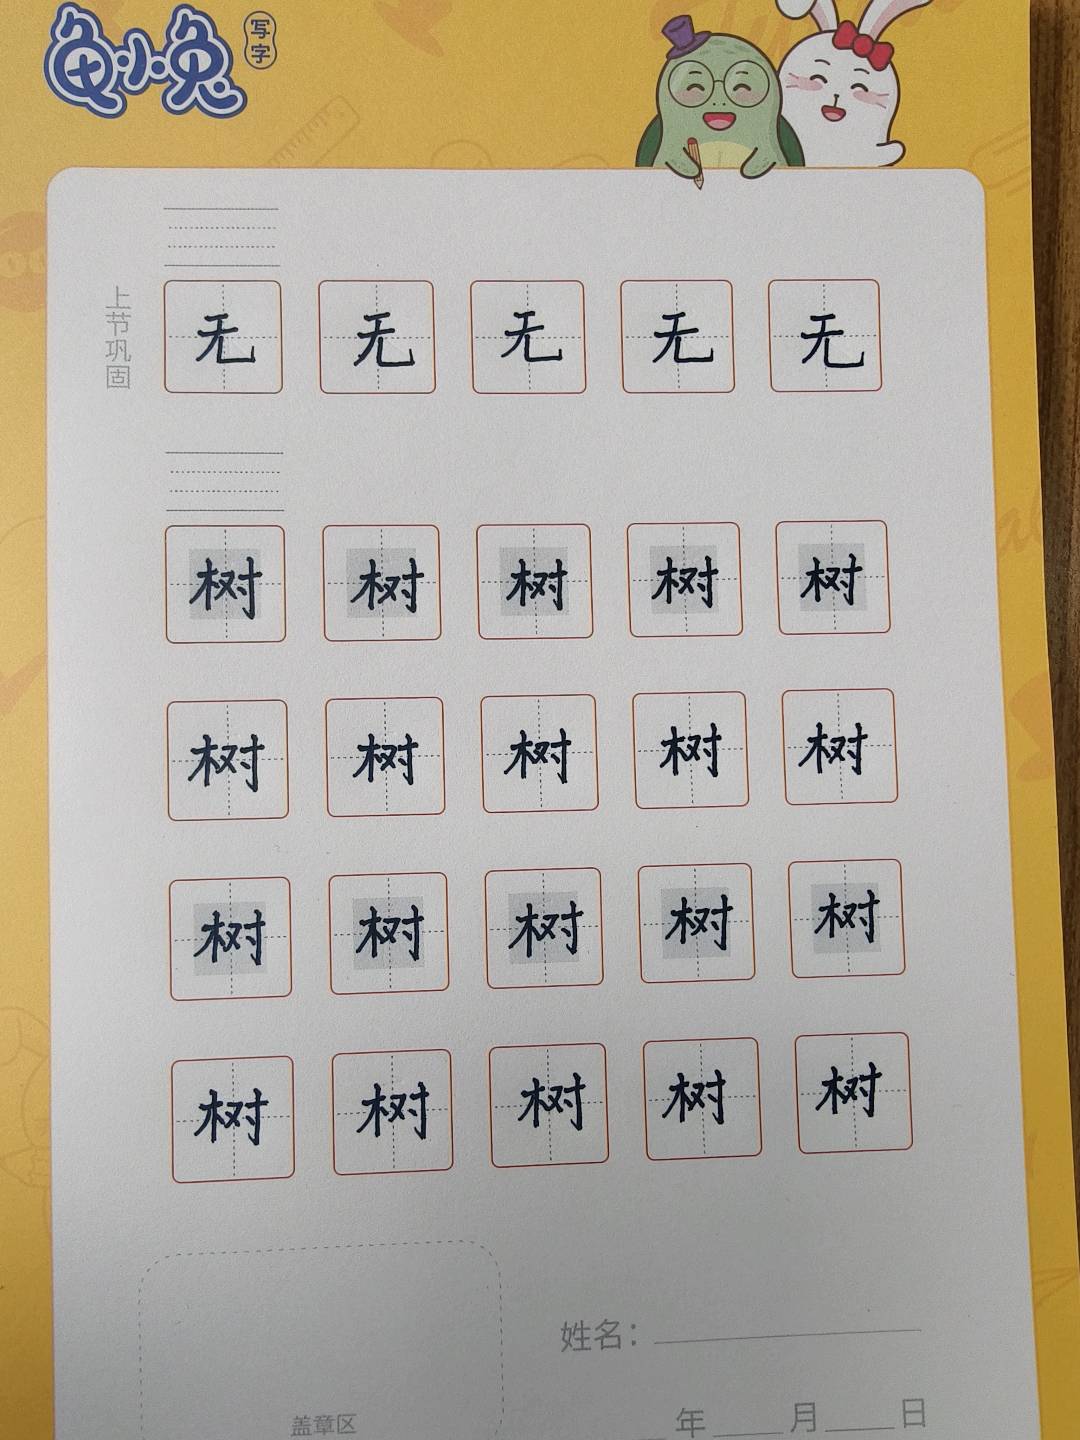 龟小兔
写字
上节巩固
无 无 无 无 无
树 树 树 树 树
树 树 树 树 树
树 树 树 树 树
树 树 树 树 树
姓名：
盖章区
年 月 日